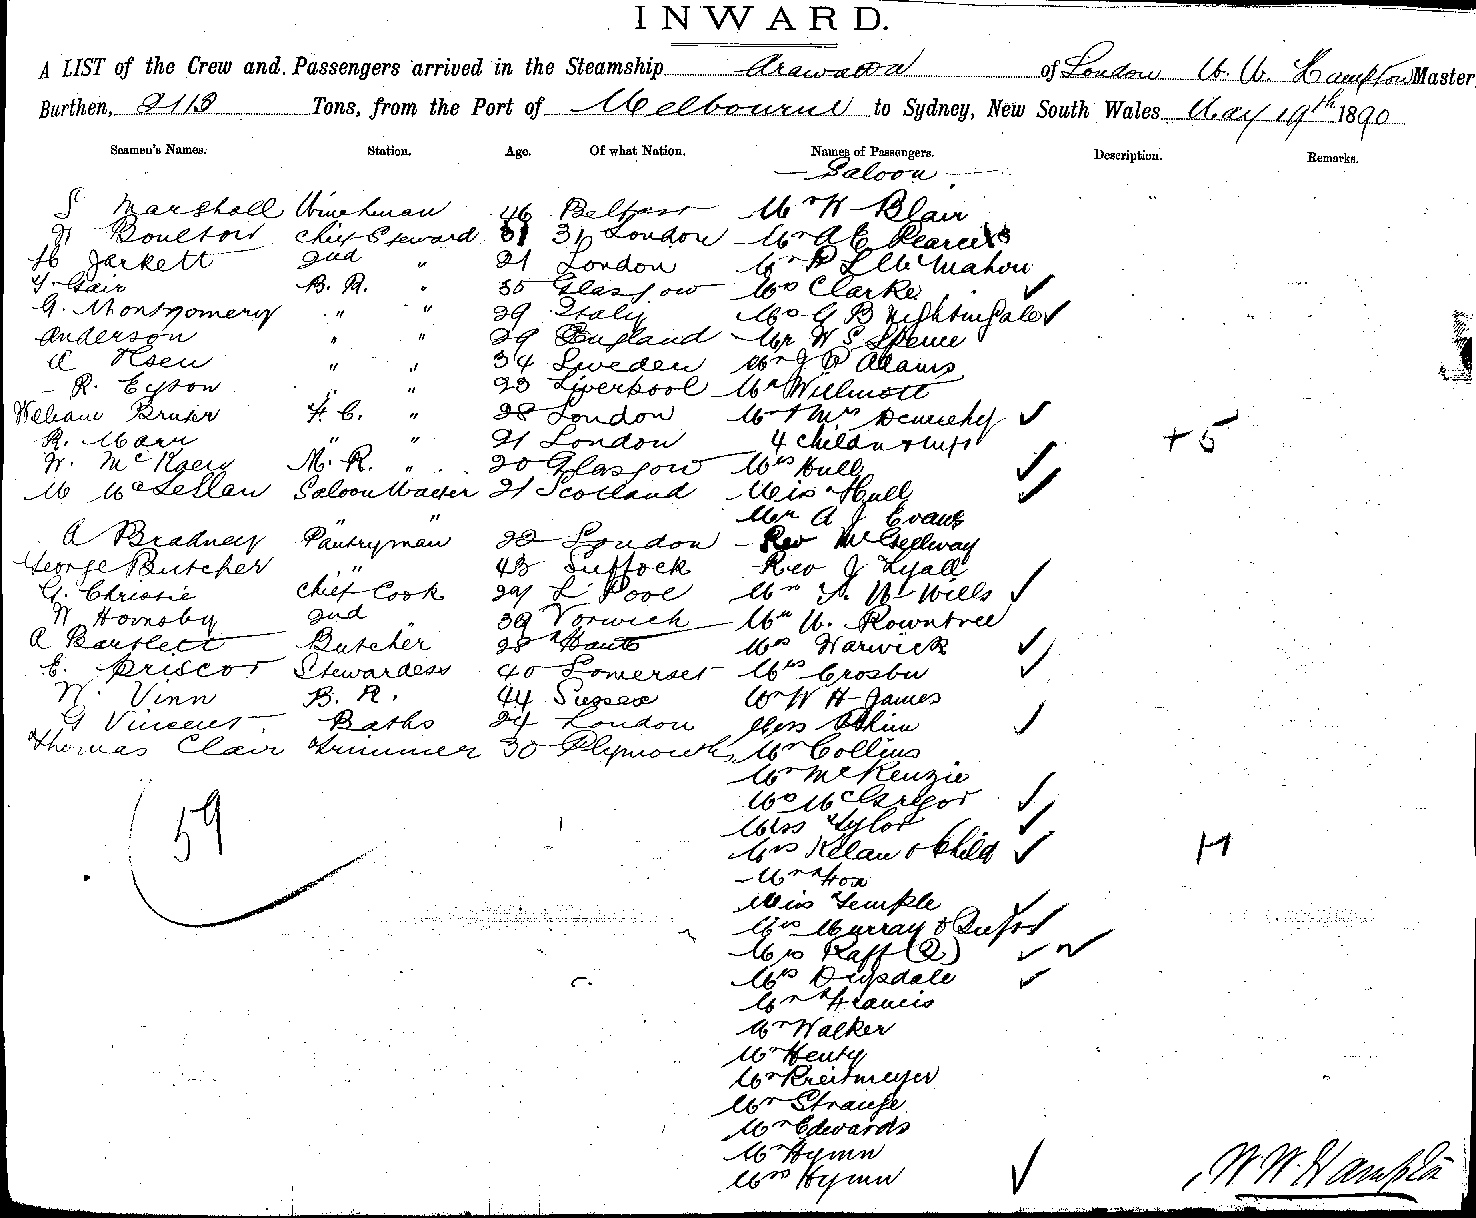 INWARD.
A LIST of the Crew and Passengers arrived in the Steamship Arawatta of London W. W. Hampton Master,
Burthen, 2113 Tons, from the Port of Melbourne to Sydney, New South Wales May 19th 1890
Seamen's Names. Station. Age. Of what Nation. Names of Passengers. Description. Remarks.
Saloon
S Marshall Winchman 46 Belfast Mr H Blair
Boulton Chief Steward 31 31 London Mr A E Pearce
H Jarkett 2nd " 21 London Mr P L McMahon
Gair B. R. " 30 Glasgow Mrs Clarke ✓
G. Montgomery " " 29 Italy Mrs G B Nightingale ✓
Anderson " " 29 England Mr W S Spence
A Olsen " " 34 Sweden Mr J P Adams
R. Eyson " " 23 Liverpool Mr Willmott
William F. C. " 28 London Mr & Mrs ✓
R. Marr " " 21 London 4 childn & +5
W. M. R. " 20 Glasgow Mrs Hull ✓
M McLellan Saloon Waiter 21 Scotland Miss Hull ✓
" " Mr A J Evans
A Bradney Pantryman 22 London Rev
George Butcher " 43 Suffock Rev J Lyall
G. Christie Chief Cook 29 L'Pool Wills ✓
W Hornsby 2nd " 39 Norwich Mr W. Rowntree
A Bartlett Butcher 28 Hants Mrs Warwick ✓
E. Driscol Stewardess 40 Somerset Mrs Crosby ✓
W. Vinn B. R. 44 Sussex Mr W H James
G Vincent Baths 24 London Miss ✓
Thomas Clair Trimmer 30 Plymouth Mr Collins
Mr McKenzie
Mrs McGregor ✓
59
Miss Tylor ✓
Mrs Kelan & Child ✓
Mr Fox
Miss Temple ✓
Mrs Murray & ✓
Mrs Raff (2) ✓
Mrs Drysdale ✓
Mr Francis
Mr Walker
Mr Henty
Mr Kreitmeyer
Mr Strange
Mr Edwards
Mr Hymn
Mrs Hymn ✓
W. W. Hampton